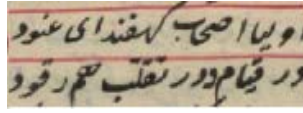 اولیا اصحاب کهفند ای عنود
در قیام و در تقلّب هم رقود